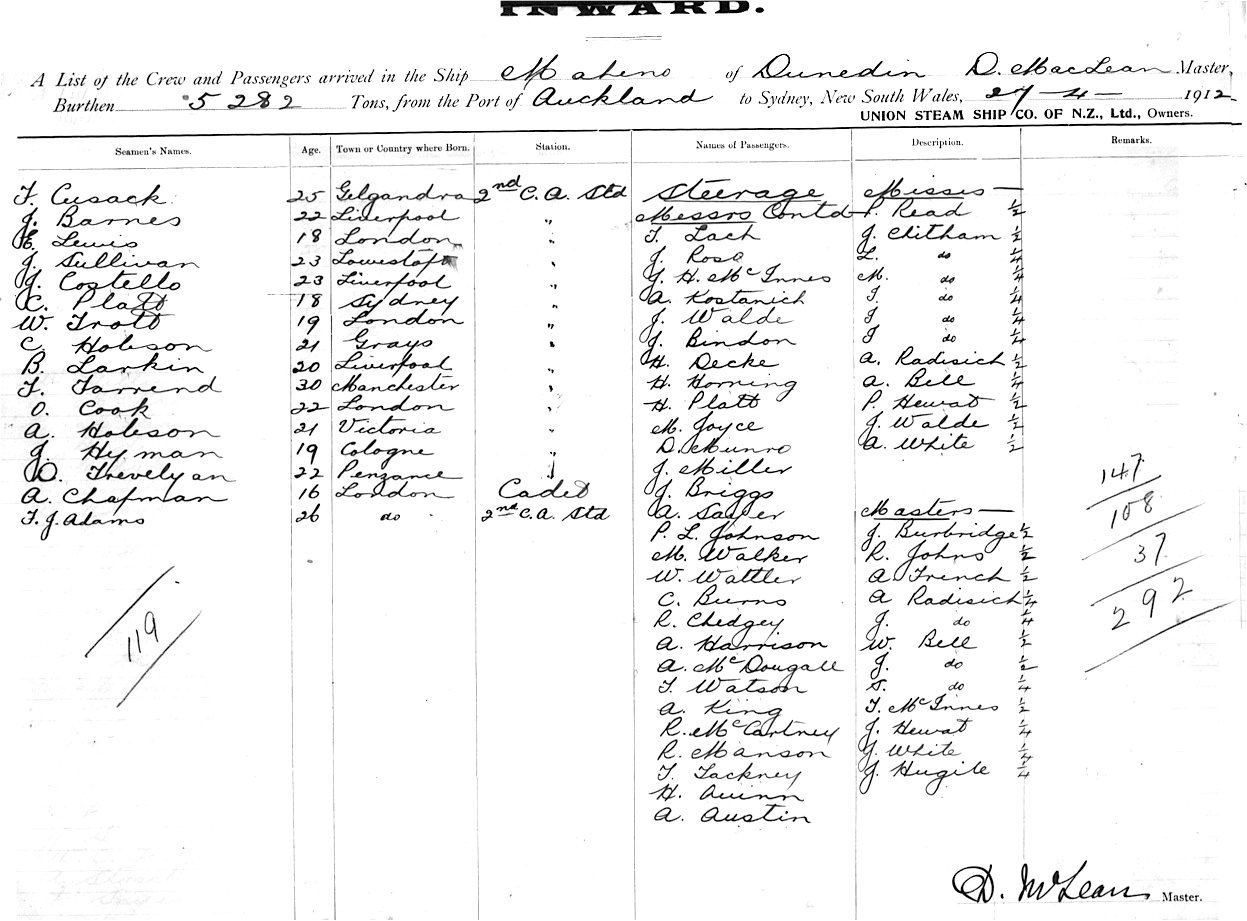 INWARD.
A List of the Crew and Passengers arrived in the Ship Maheno of Dunedin D. MacLean Master,
Burthen 5282 Tons, from the Port of Auckland to Sydney, New South Wales, 27-4- 1912
UNION STEAM SHIP CO. OF N.Z., Ltd., Owners.
Seamen's Names. Age. Town or Country where Born. Station. Names of Passengers. Description. Remarks.
F. Cusack 25 Gelgandra 2nd C.A. Std Steerage Misses —
J. Barnes 22 Liverpool " Messrs Contd P. Read 1/2
E. Lewis 18 London " T. Lach J. Chitham 1/2
J. Sullivan 23 Lowestoft " J. Rose L. do 1/4
J. Costello 23 Liverpool " J. H. McInnes M. do 1/4
C. Platt 18 Sydney " A. Kostanich I. do 1/4
W. Trott 19 London " J. Walde I do 1/4
C Hobson 21 Grays " J. Bindon I do 1/4
B. Larkin 20 Liverpool " H. Decke A. Radisich 1/2
F. Farrend 30 Manchester " H. Horning A. Bell 1/4
O. Cook 22 London " H. Platt P. Hewat 1/2
A. Hobson 21 Victoria " M. Joyce J. Walde 1/2
J. Hyman 19 Cologne " D. Munro A. White 1/2
D. Trevelyan 22 Penzance " J. Miller
A. Chapman 16 London Cadet J. Briggs
F. J. Adams 26 do 2nd C.A. Std A. Masters —
P. L. Johnson J. Burbridge 1/2
M. Walker R. Johns 1/2
W. Wattler A French 1/2
C. Burns A Radisich 1/4
R. Chedgey J. do 1/4
A. Harrison W. Bell 1/2
A. McDougall J. do 1/2
T. Watson S. do 1/4
A. King T. McInnes 1/2
R. McCartney J. Hewat 1/4
R. Manson J. White 1/4
T. Tackney J. Hugile 1/4
H. Quinn
A. Austin
147
108
37
292
119
D. McLean Master.